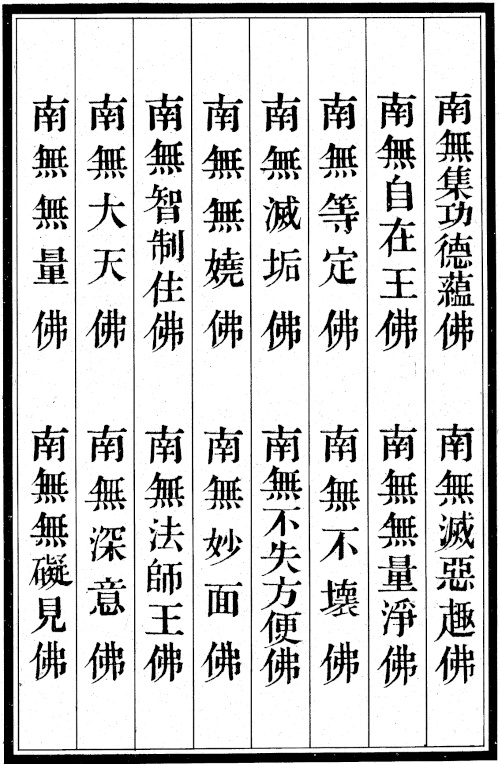 南無集功德蘊佛 南無滅惡趣佛
南無自在王佛 南無無量淨佛
南無等定佛 南無不壞佛
南無滅垢佛 南無不失方便佛
南無無嬈佛 南無妙面佛
南無智制住佛 南無法師王佛
南無大天佛 南無深意佛
南無無量佛 南無無礙見佛